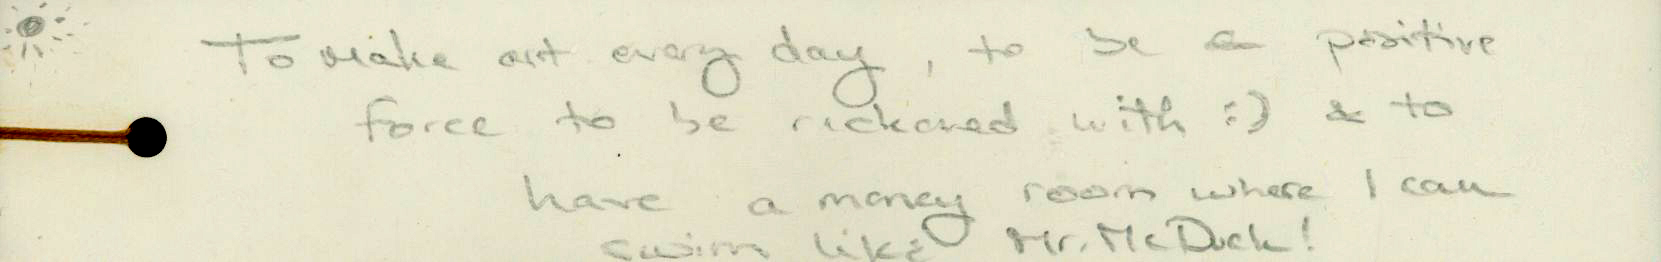 To make art every day, to be a positive
force to be rickoned with :) & to
have a money room where I can
swim like Mr. McDuck!